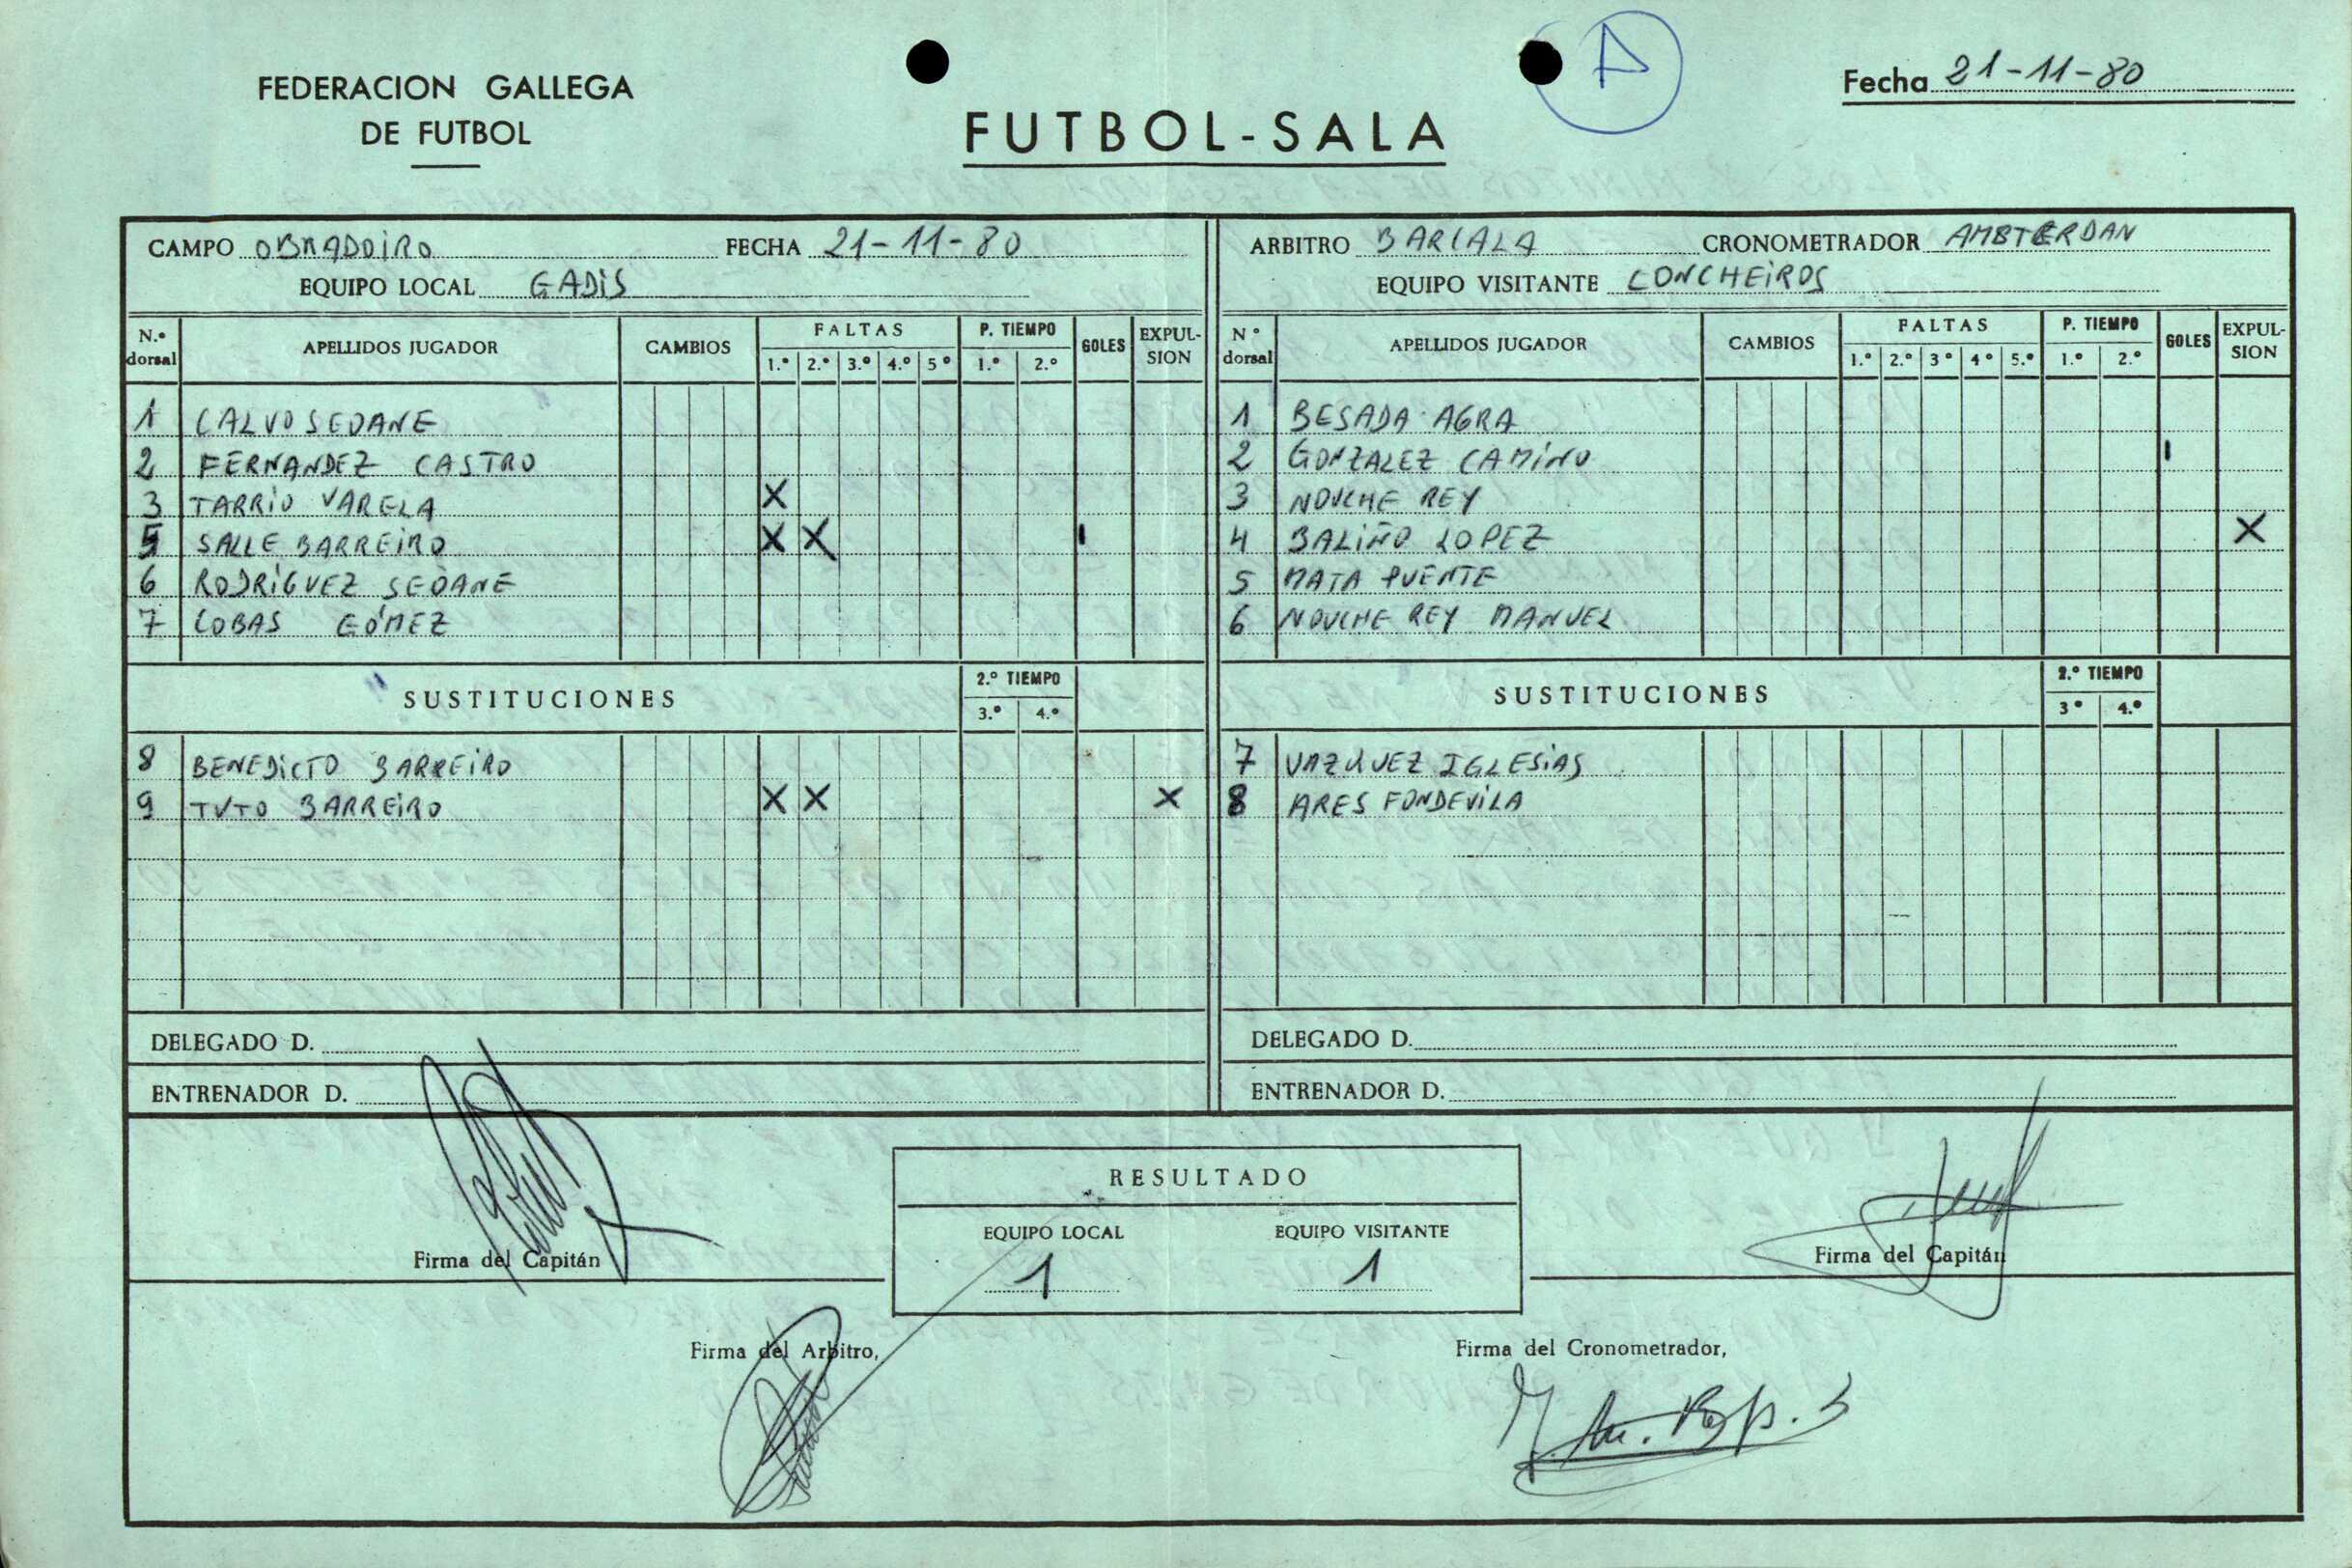 A
FEDERACION GALLEGA
DE FUTBOL
FUTBOL-SALA
Fecha 21-11-80
CAMPO OBRADOIRO FECHA 21-11-80
EQUIPO LOCAL GADIS
N.º dorsal APELLIDOS JUGADOR CAMBIOS FALTAS 1.º 2.º 3.º 4.º 5º P. TIEMPO 1.º 2.º GOLES EXPULSION
1 CALVO SEOANE
2 FERNANDEZ CASTRO
3 TARRIO VARELA X
5 SALLE BARREIRO X X 1
6 RODRIGUEZ SEOANE
7 COBAS GÓMEZ
SUSTITUCIONES 2.º TIEMPO 3.º 4.º
8 BENEDICTO BARREIRO
9 TUTO BARREIRO X X X
DELEGADO D.
ENTRENADOR D.
ARBITRO BARCALA CRONOMETRADOR AMBTERDAN
EQUIPO VISITANTE CONCHEIROS
Nº dorsal APELLIDOS JUGADOR CAMBIOS FALTAS 1.º 2.º 3º 4º 5.º P. TIEMPO 1.º 2.º GOLES EXPULSION
1 BESADA AGRA
2 GONZALEZ CAMINO 1
3 NOUCHE REY
4 BALIÑO LOPEZ X
5 MATA PUENTE
6 NOUCHE REY MANUEL
SUSTITUCIONES 2.º TIEMPO 3º 4.º
7 VAZQUEZ IGLESIAS
8 ARES FONDEVILA
DELEGADO D.
ENTRENADOR D.
RESULTADO
EQUIPO LOCAL EQUIPO VISITANTE
1 1
Firma del Capitán
Firma del Capitán
Firma del Arbitro,
Firma del Cronometrador,